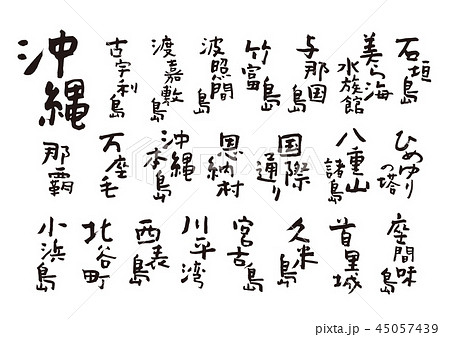 沖縄
石垣島
美ら海水族館
与那国島
竹富島
波照間島
渡嘉敷島
古宇利島
ひめゆりの塔
八重山諸島
国際通り
恩納村
沖縄本島
万座毛
那覇
座間味島
首里城
久米島
宮古島
川平湾
西表島
北谷町
小浜島
pixta.jp - 45057439